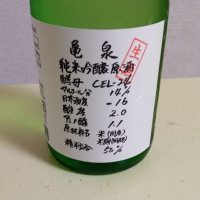 亀泉
生
純米吟醸原酒
酵母 CEL-24
アルコール分 14%
日本酒度 -16
酸度 2.0
アミノ酸 1.1
原材料名 米(国産)
米麹(国産米)
精米歩合 50%